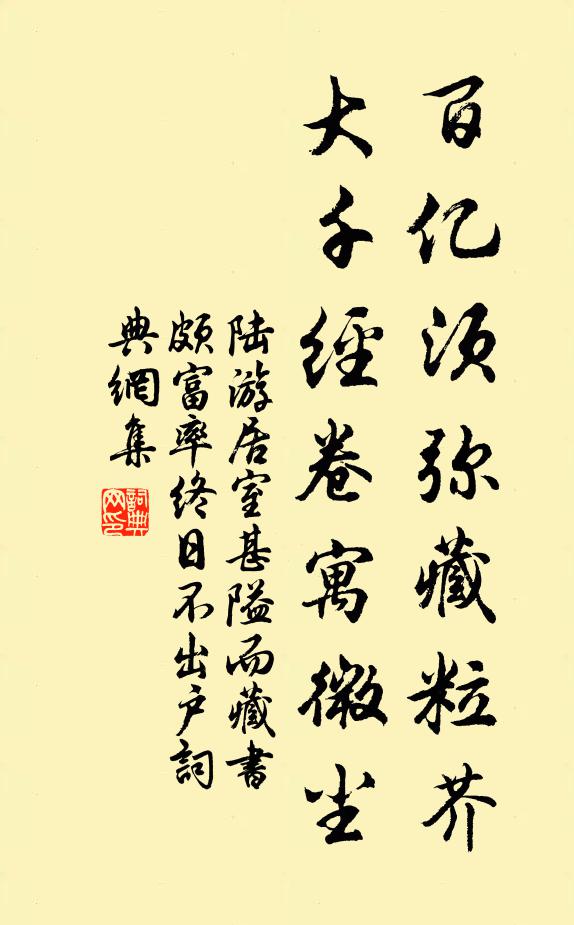 百亿须弥藏粒芥
大千經卷寓微尘
陆游居室甚隘而藏書
頗富率终日不出户詞
典網集
詞典
网印